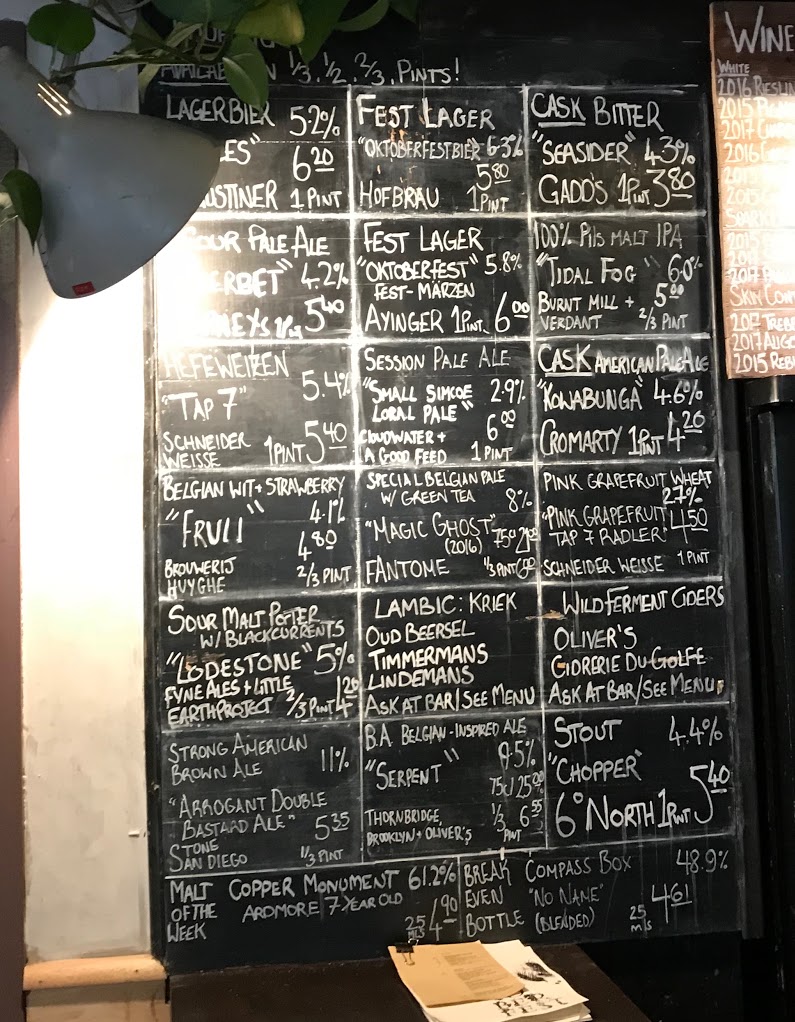 1/3, 1/2, 2/3, PINTS!
LAGERBIER 5.2%
6.20
1 PINT
FEST LAGER
"OKTOBERFESTBIER" 6.3%
5.80
HOFBRAU 1 PINT
CASK BITTER
"SEASIDER" 4.3%
GADDS 1 PINT 3.80
PALE ALE
4.2%
5.40
FEST LAGER
"OKTOBERFEST" 5.8%
FEST-MÄRZEN
AYINGER 1 PINT 6.00
100% PILS MALT IPA
"TIDAL FOG" 6.0%
BURNT MILL + 5.00
VERDANT 2/3 PINT
HEFEWEIZEN
5.4%
"TAP 7"
SCHNEIDER
WEISSE 1 PINT 5.40
SESSION PALE ALE
"SMALL SIMCOE 2.9%
LORAL PALE"
6.00
CLOUDWATER +
A GOOD FEED 1 PINT
CASK AMERICAN PALE ALE
"KOWABUNGA" 4.6%
CROMARTY 1 PINT 4.20
BELGIAN WIT + STRAWBERRY
4.1%
"FRULI"
4.80
BROUWERIJ
HUYGHE 2/3 PINT
SPECIAL BELGIAN PALE
W/ GREEN TEA
8%
"MAGIC GHOST"
(2016) 75cl
FANTOME 1/3 PINT
PINK GRAPEFRUIT WHEAT
2.7%
"PINK GRAPEFRUIT 4.50
TAP 7 RADLER"
SCHNEIDER WEISSE 1 PINT
SOUR MALT PORTER
W/ BLACKCURRENTS
"LODESTONE" 5%
FYNE ALES + LITTLE
EARTH PROJECT 2/3 PINT 4.20
LAMBIC: KRIEK
OUD BEERSEL
TIMMERMANS
LINDEMANS
ASK AT BAR/SEE MENU
WILD FERMENT CIDERS
OLIVER'S
CIDRERIE DU GOLFE
ASK AT BAR/SEE MENU
STRONG AMERICAN
BROWN ALE 11%
"ARROGANT DOUBLE
BASTARD ALE" 5.35
STONE
SAN DIEGO 1/3 PINT
B.A. BELGIAN-INSPIRED ALE
9.5%
"SERPENT"
75cl 25.00
THORNBRIDGE, 1/3 6.55
BROOKLYN + OLIVER'S PINT
STOUT 4.4%
"CHOPPER"
6° NORTH 1 PINT 5.40
MALT COPPER MONUMENT 61.2%
OF THE ARDMORE 7 YEAR OLD
WEEK 25 MLS 4.90
BREAK COMPASS BOX 48.9%
EVEN "NO NAME" 4.61
BOTTLE (BLENDED) 25 mls
WINE
WHITE
2016
2015
2017
2016
2015